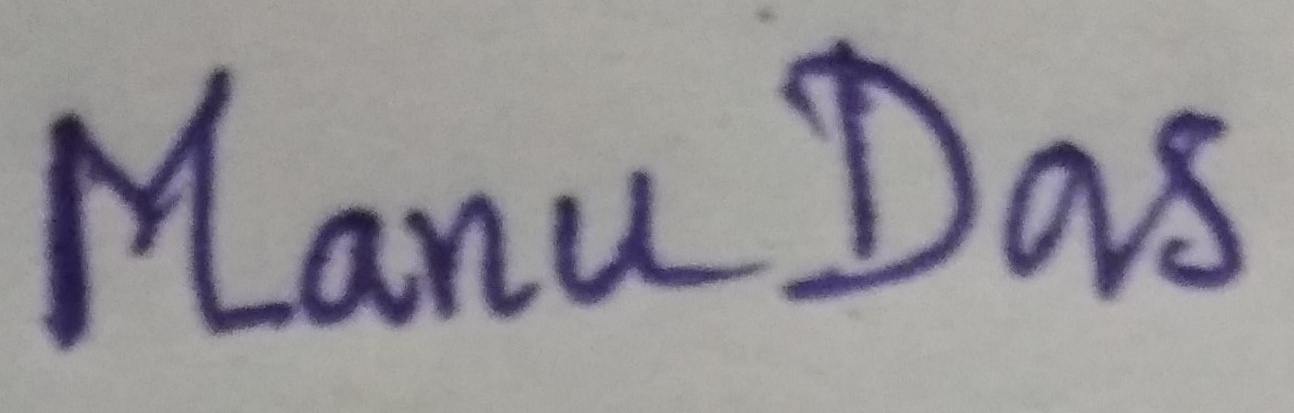 Manu Das